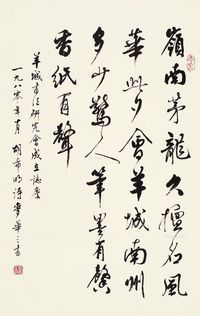 嶺南茅龍久擅名風
華此夕會羊城南州
多少驚人筆墨有馨
香紙有聲
羊城書法研究會成立誌慶
一九八〇年 月 胡希明詩 麥華三書